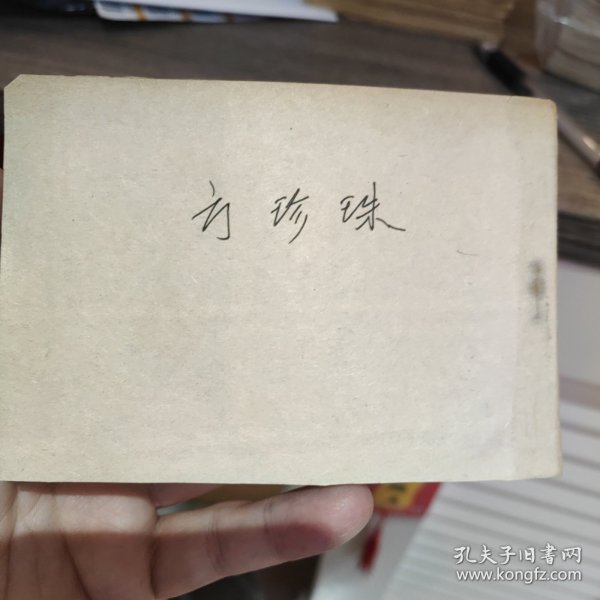 方珍珠
孔夫子旧書网
www.kongfz.com